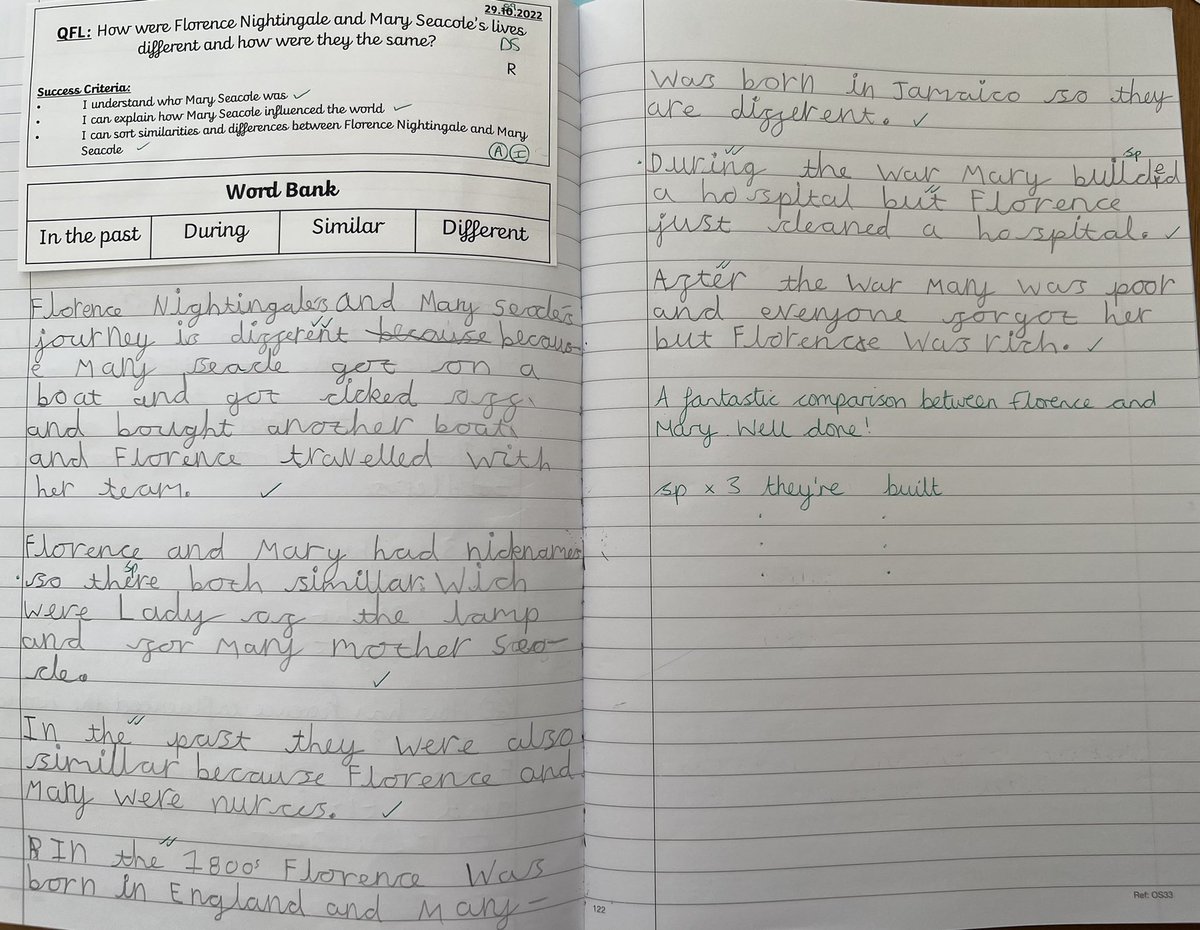 29.10.2022
QFL: How were Florence Nightingale and Mary Seacole's lives
different and how were they the same?
DS
R
Success Criteria:
• I understand who Mary Seacole was ✓
• I can explain how Mary Seacole influenced the world ✓
• I can sort similarities and differences between Florence Nightingale and Mary
Seacole ✓
A I
Word Bank
In the past During Similar Different
Florence Nightingale's and Mary Seacle's
journey is different because becaus-
e Mary Seacle got on a
boat and got cicked off
and bought another boat
and Florence travelled with
her team. ✓
Florence and Mary had nicknames
sp
so there both simillar. Wich
were Lady of the lamp
and for Mary mother Seo-
cle. ✓
In the past they were also
simillar because Florence and
Mary were nurces. ✓
In the 1800s Florence was
born in England and Mary-
was born in Jamaica so they
are different. ✓
sp
During the war Mary builded
a hospital but Florence
just cleaned a hospital. ✓
After the war Mary was poor
and everyone forgot her
but Florence was rich. ✓
A fantastic comparison between Florence and
Mary. Well done!
sp x 3 they're built
122
Ref: OS33